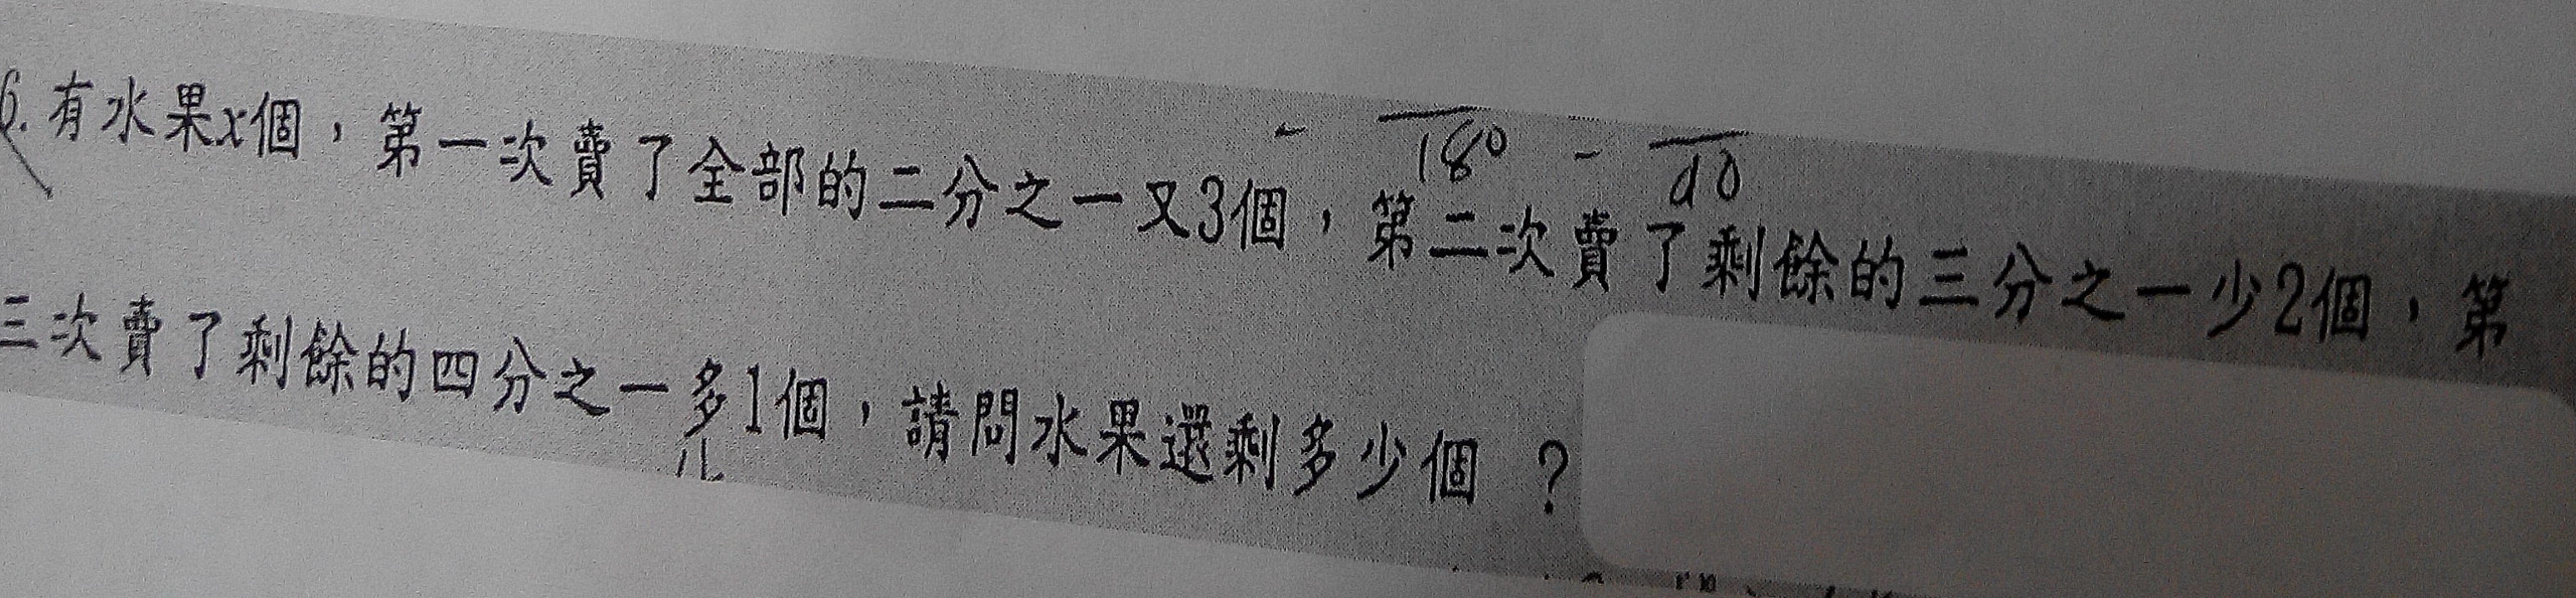 6.有水果x個，第一次賣了全部的二分之一又3個，第二次賣了剩餘的三分之一少2個，第
三次賣了剩餘的四分之一多1個，請問水果還剩多少個？
180